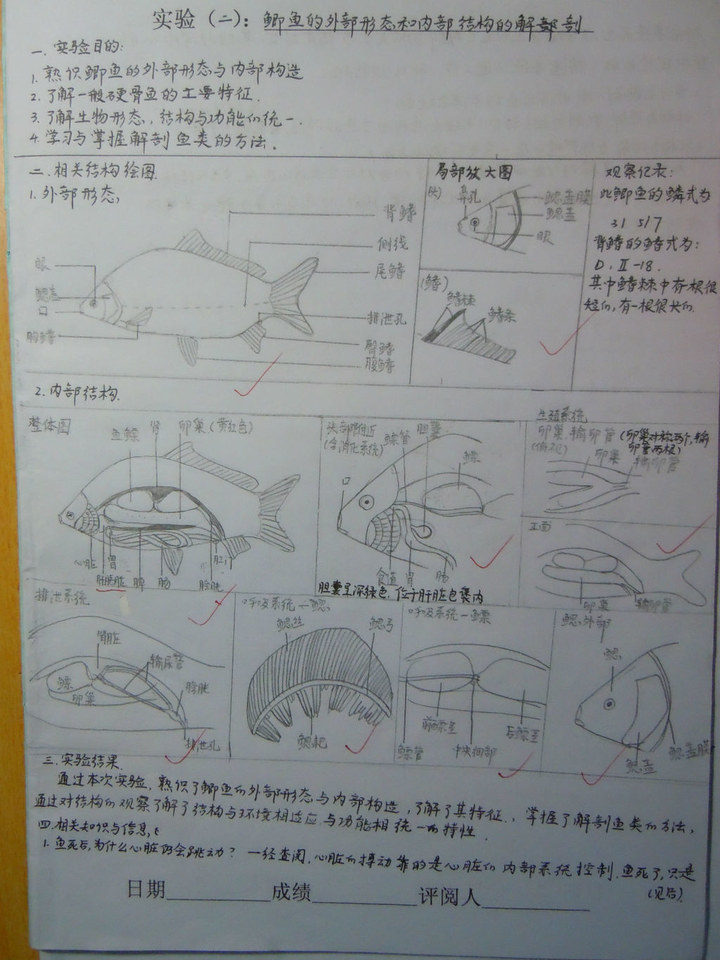 实验（二）：鲫鱼的外部形态和内部结构的解剖
一.实验目的:
1.熟识鲫鱼的外部形态与内部构造
2.了解一般硬骨鱼的主要特征.
3.了解生物形态、结构与功能的统一.
4.学习与掌握解剖鱼类的方法.
二.相关结构绘图.
1.外部形态,
背鳍
侧线
尾鳍
排泄孔
臀鳍
腹鳍
眼
鳃盖
口
胸鳍
局部放大图
(头)
鼻孔
鳃盖膜
鳃盖
眼
(鳍)
鳍棘
鳍条
观察记录:
此鲫鱼的鳞式为
31 5/7
背鳍的鳍式为:
D. Ⅱ-18.
其中鳍棘中有一根很
短的,有一根很大的.
2.内部结构.
整体图
鱼鳔
肾
卵巢(黄红色)
心脏
胃
肝胰脏
脾
肠
膀胱
肛门
头部附近
(含消化系统)
鳔管
胆囊
鳔
口
食道
胃
肠
胆囊呈深绿色.位于肝脏包裹内
生殖系统
卵巢.输卵管(卵巢对称两个,输
卵管两根)
(俯视)
卵巢
输卵管
正面
卵巢
输卵管
排泄系统
肾脏
输尿管
鳔
卵巢
膀胱
排泄孔
呼吸系统—鳃
鳃丝
鳃弓
鳃耙
呼吸系统—鳔
前鳔室
后鳔室
鳔管
中央细部
鳃外部
鳃
鳃盖
鳃盖膜
三.实验结果
通过本次实验,熟识了鲫鱼的外部形态与内部构造,了解了其特征.,掌握了解剖鱼类的方法,
通过对结构的观察了解了结构与环境相适应.与功能相统一的特性.
四.相关知识与信息.
1.鱼死后,为什么心脏仍会跳动？一经查阅.心脏的搏动靠的是心脏的内部系统控制.鱼死了,只是
(见后)
日期 成绩 评阅人